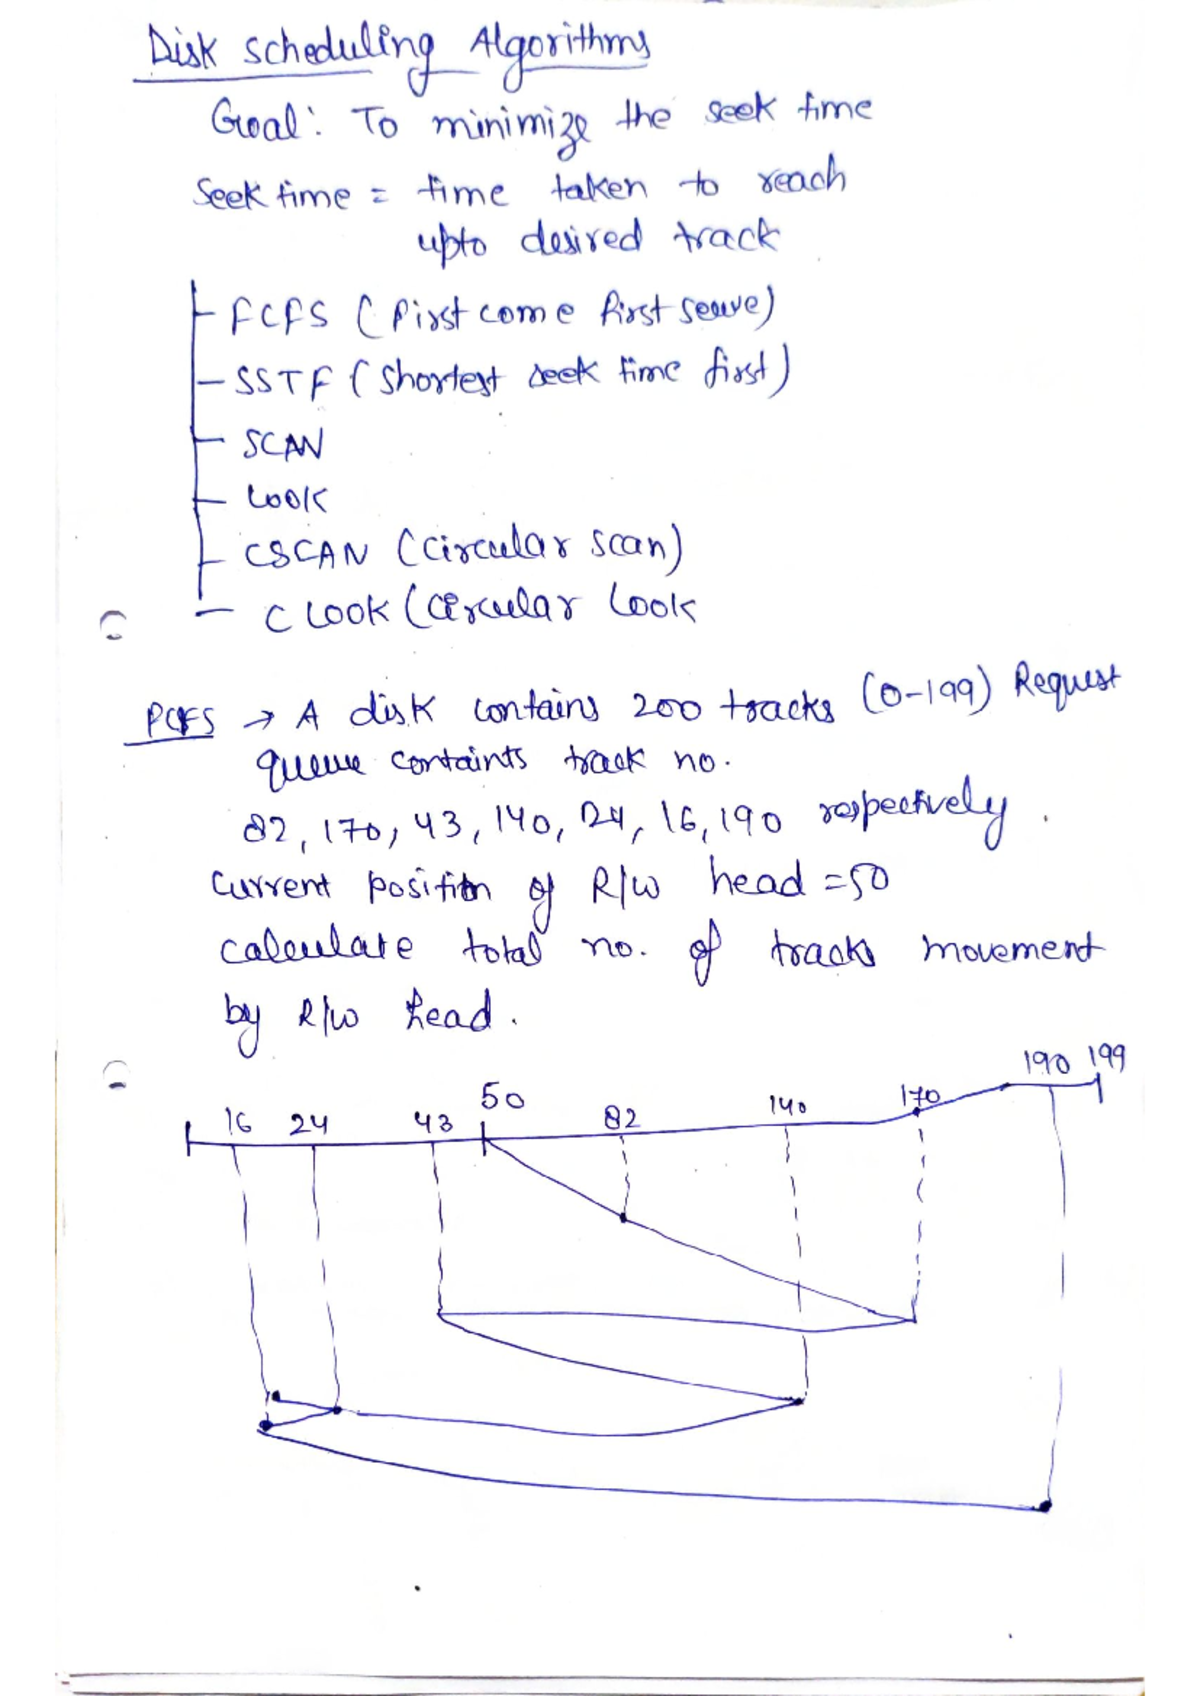 Disk scheduling Algorithms
Goal: To minimize the seek time
Seek time = time taken to reach
upto desired track
FCFS (first come first serve)
SSTF (shortest seek time first)
SCAN
LOOK
CSCAN (circular scan)
C LOOK (circular look
FCFS → A disk contains 200 tracks (0-199) Request
queue containts track no.
82, 170, 43, 140, 24, 16, 190 respectively.
Current position of R/W head = 50
calculate total no. of tracks movement
by R/W head.
16 24 43 50 82 140 170 190 199